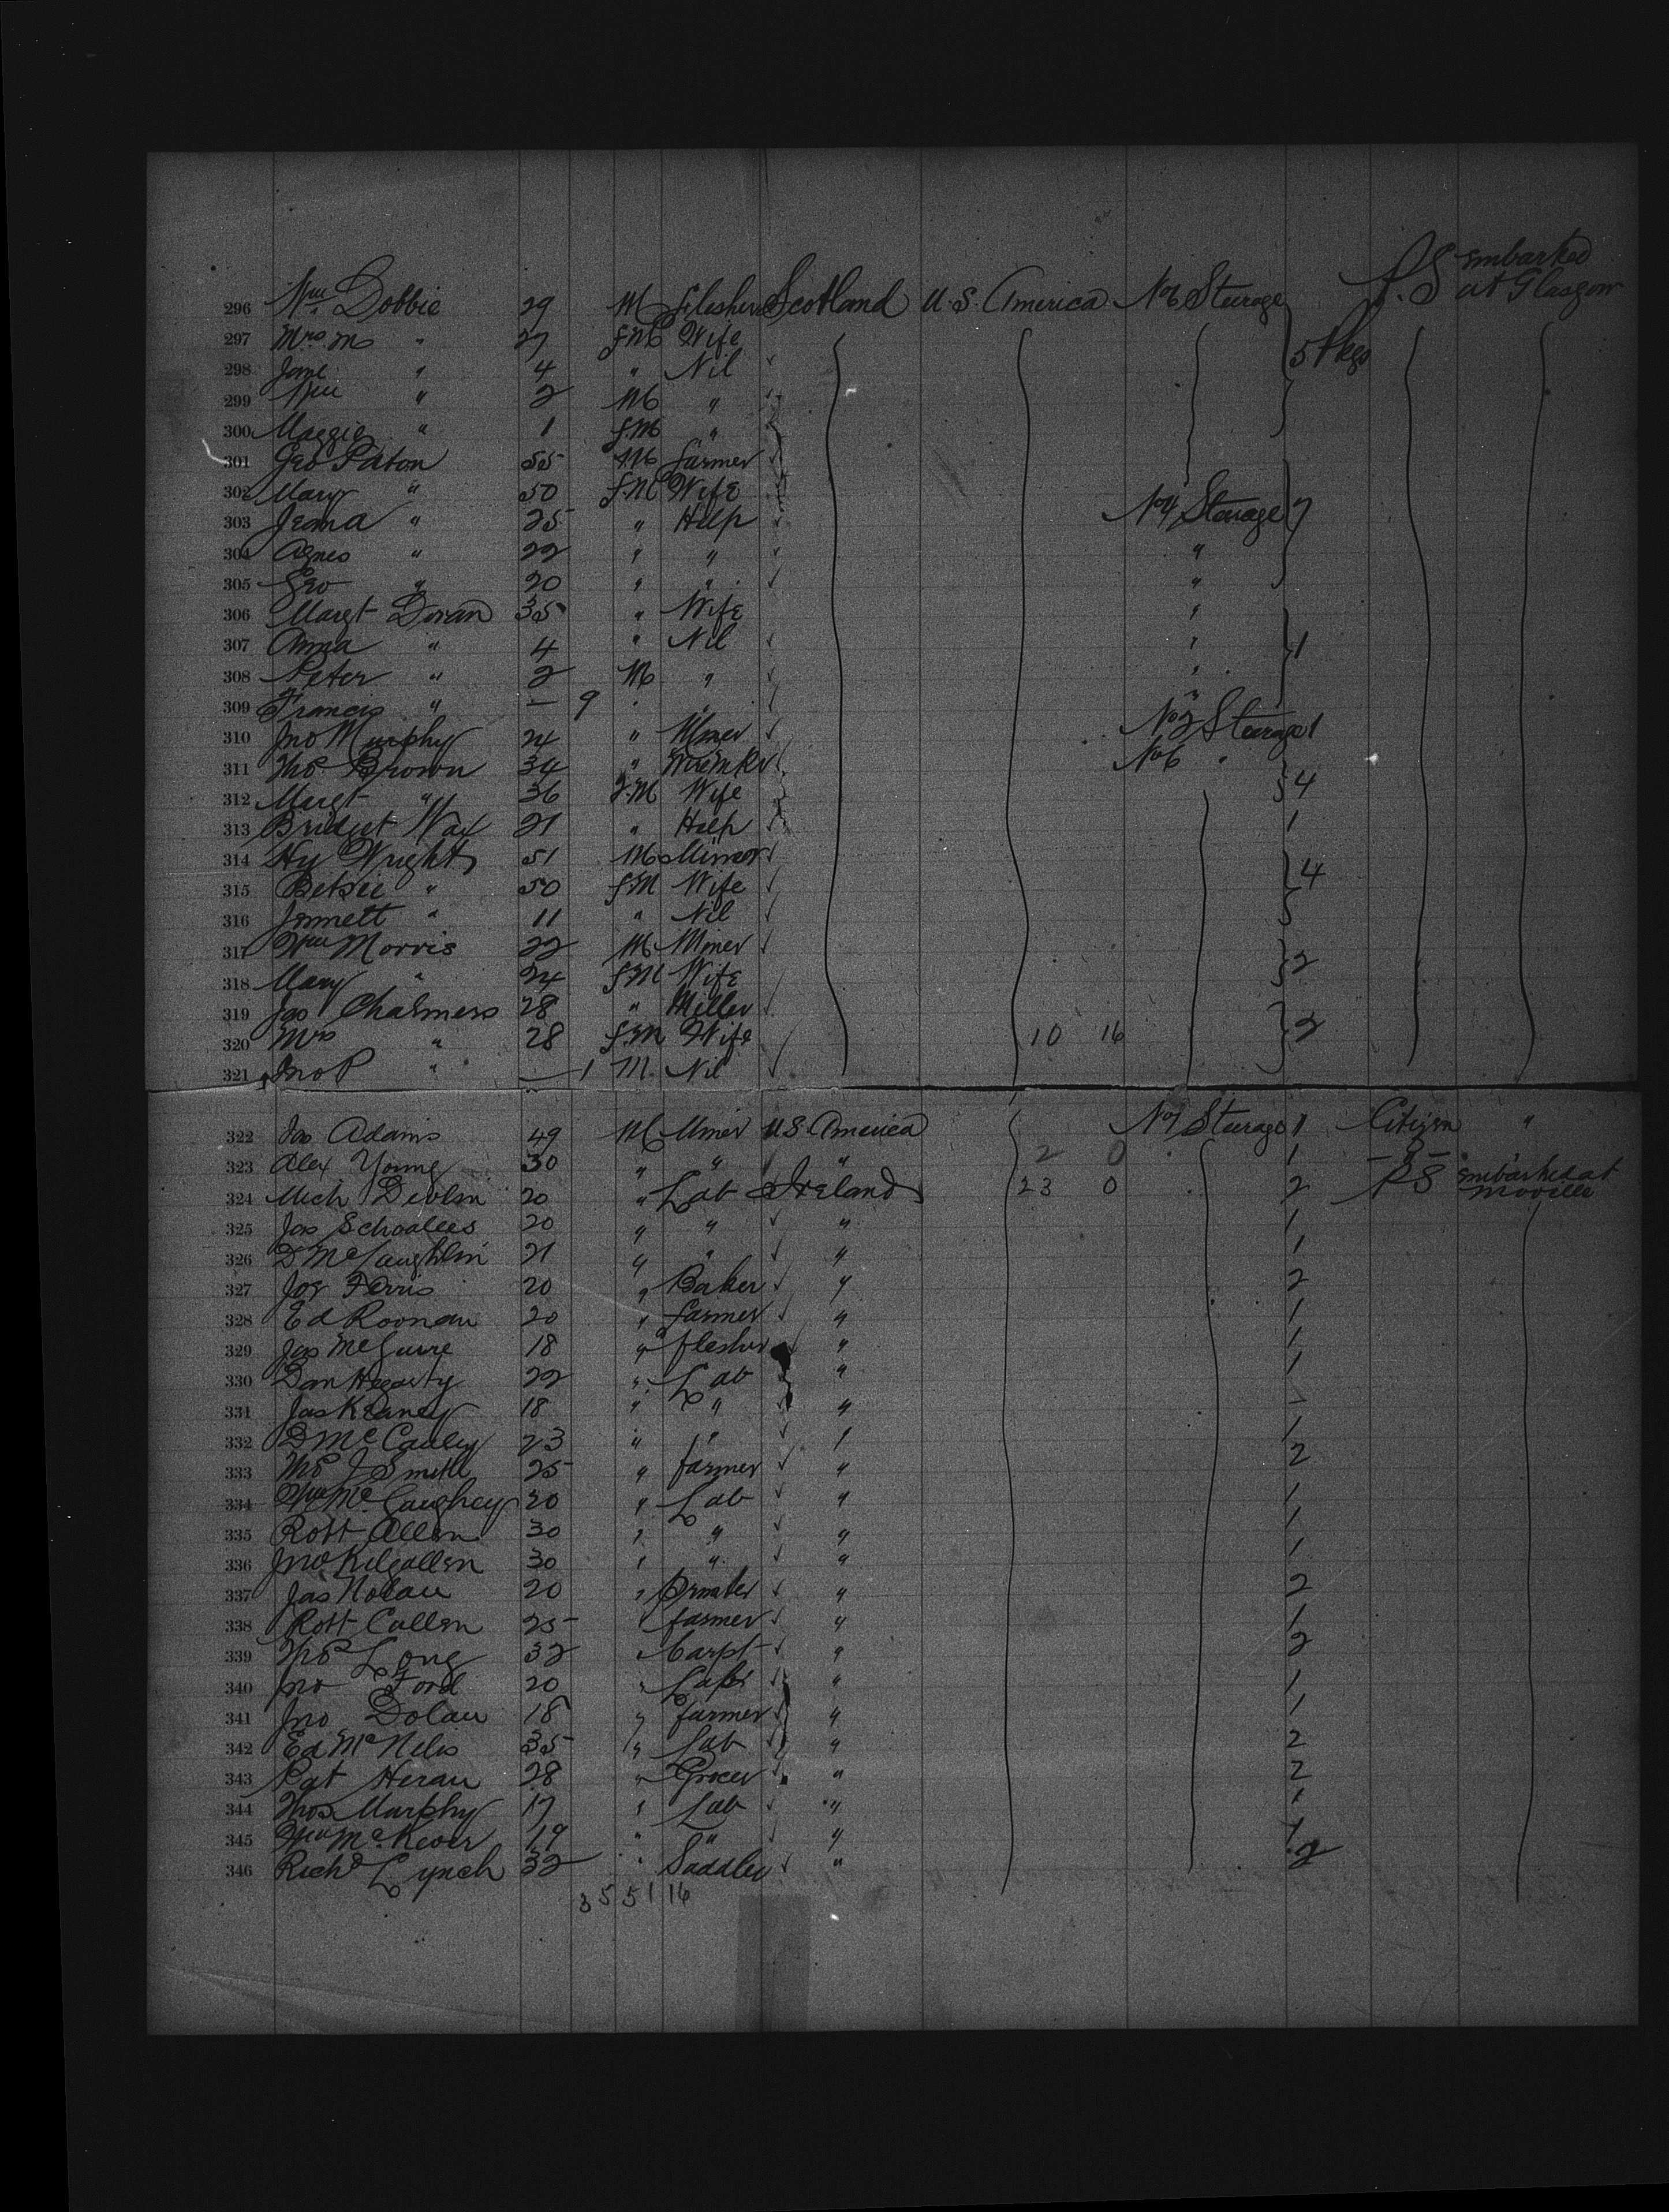 296 Wm Dobbie 29 M Flesher Scotland U.S. America No 6 Steerage P.S embarked at Glasgow
297 Mrs M " 27 F.M Wife
298 Jane " 4 " Nil 5 Pkgs
299 Wm " 2 M "
300 Maggie " 1 F.M "
301 Geo Paton 55 M Farmer
302 Mary " 50 F.M Wife
303 Jema " 25 " Help No 4 Steerage 7
304 Agnes " 22 " " "
305 Geo " 20 " " "
306 Margt Doran 35 " Wife "
307 Anna " 4 " Nil " 1
308 Peter " 2 M " "
309 Francis " — 9 " " "
310 Jno Murphy 24 " Miner No 2 Steerage 1
311 Thos Brown 34 " No 6 "
312 Margt " 36 F.M Wife 4
313 Bridget 21 " Help 1
314 Hy Wright 51 M Miner
315 Betsie " 50 F.M Wife 4
316 Jennett " 11 " Nil
317 Wm Morris 22 M Miner
318 Mary " 24 F.M Wife 2
319 Jas Chalmers 28 " Miller
320 Mrs " 28 F.M Wife 10 16 2
321 Jno P " — 1 M. Nil
322 Jas Adams 49 M Miner U.S. America No 1 Steerage 1 Citizen "
323 Alex Young 30 " " " 2 0 1
324 Mich Devlin 20 " Lab Ireland 23 0 2 P.S embarked at Moville
325 Jas Schoalees 20 " " " 1
326 D McLaughlin 21 " " " 1
327 Jos Ferris 20 " Baker " 2
328 Ed Roonan 20 " Farmer " 1
329 Jas McGuire 18 " Flesher " 1
330 Dan Hegarty 22 " Lab " 1
331 Jas Keaney 18 " " " —
332 D McCauley 23 " " " 1
333 Thos J Smith 25 " Farmer " 2
334 Wm McCaughey 20 " Lab " 1
335 Robt Allen 30 " " " 1
336 Jno Kilgallen 30 " " " 1
337 Jas Nolan 20 " Printer " 2
338 Robt Cullen 25 " Farmer " 1
339 Thos Long 32 " Carpt " 2
340 Jno Ford 20 " Lab " 1
341 Jno Dolan 18 " Farmer " 1
342 Ed McNelis 35 " Lab " 2
343 Pat Heran 28 " Grocer " 2
344 Thos Murphy 17 " Lab " 1
345 Wm McKever 19 " " " 1
346 Richd Lynch 32 " Saddler " 2
3 5 51 16